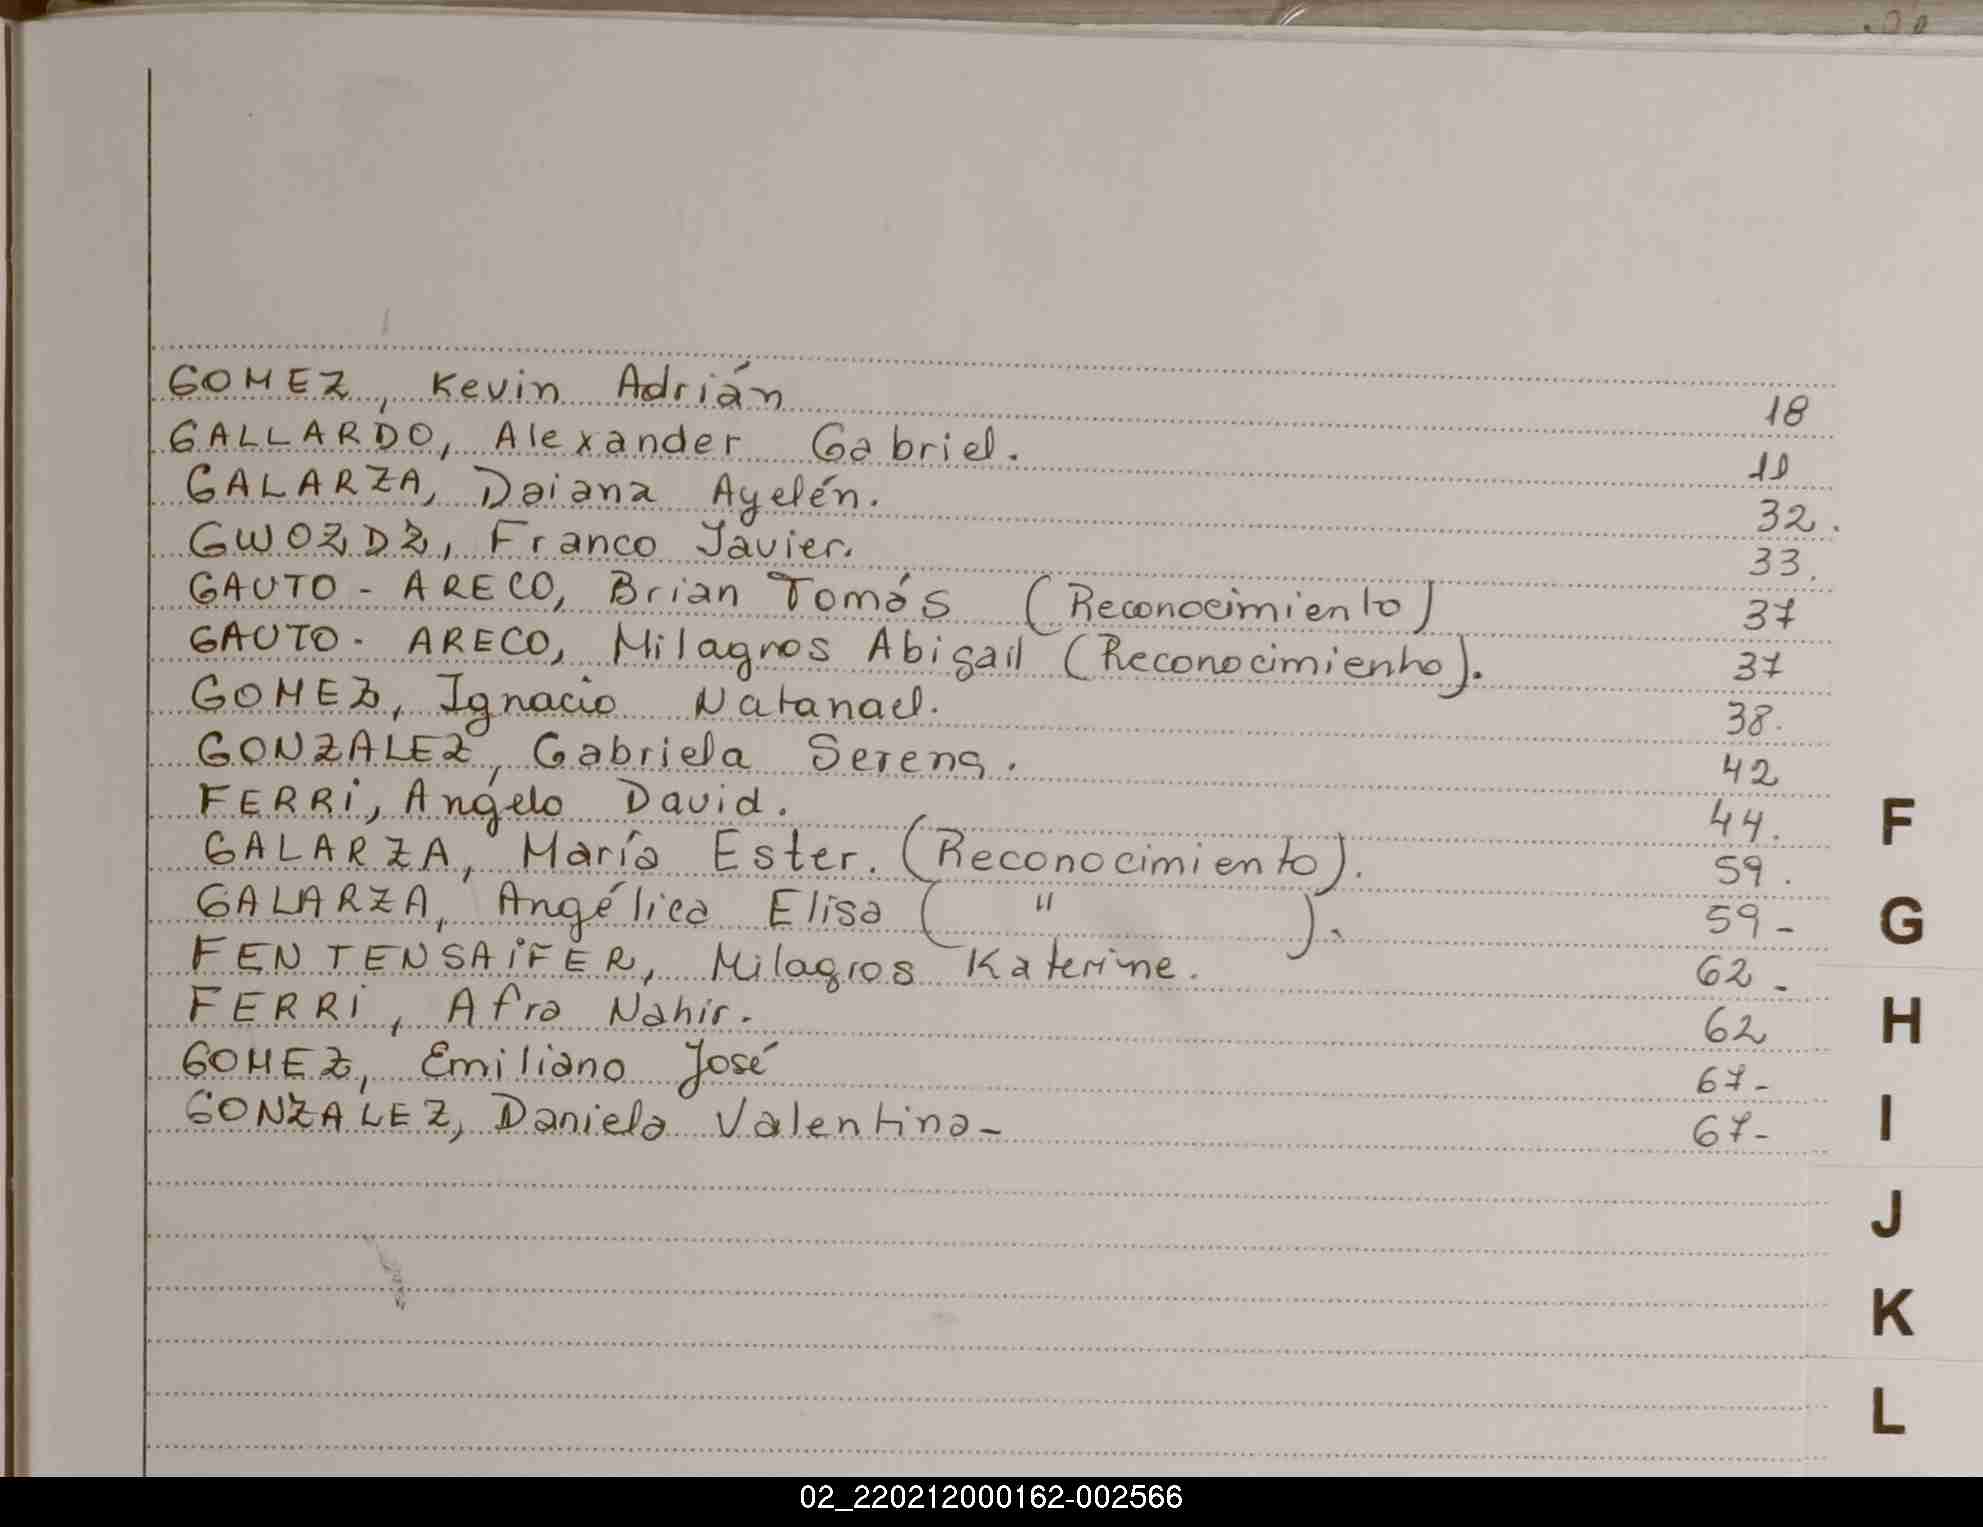 GOMEZ, Kevin Adrián 18
GALLARDO, Alexander Gabriel.
GALARZA, Daiana Ayelén. 32.
GWOZDZ, Franco Javier. 33.
GAUTO - ARECO, Brian Tomás (Reconocimiento) 37
GAUTO - ARECO, Milagros Abigail (Reconocimiento). 37
GOMEZ, Ignacio Natanael. 38.
GONZALEZ, Gabriela Serena. 42
FERRI, Angelo David. 44.
GALARZA, María Ester. (Reconocimiento). 59.
GALARZA, Angélica Elisa ( " ). 59-
FENTENSAIFER, Milagros Katerine. 62-
FERRI, Afra Nahir. 62
GOMEZ, Emiliano José 67-
GONZALEZ, Daniela Valentina- 67-
F
G
H
I
J
K
L
02_220212000162-002566